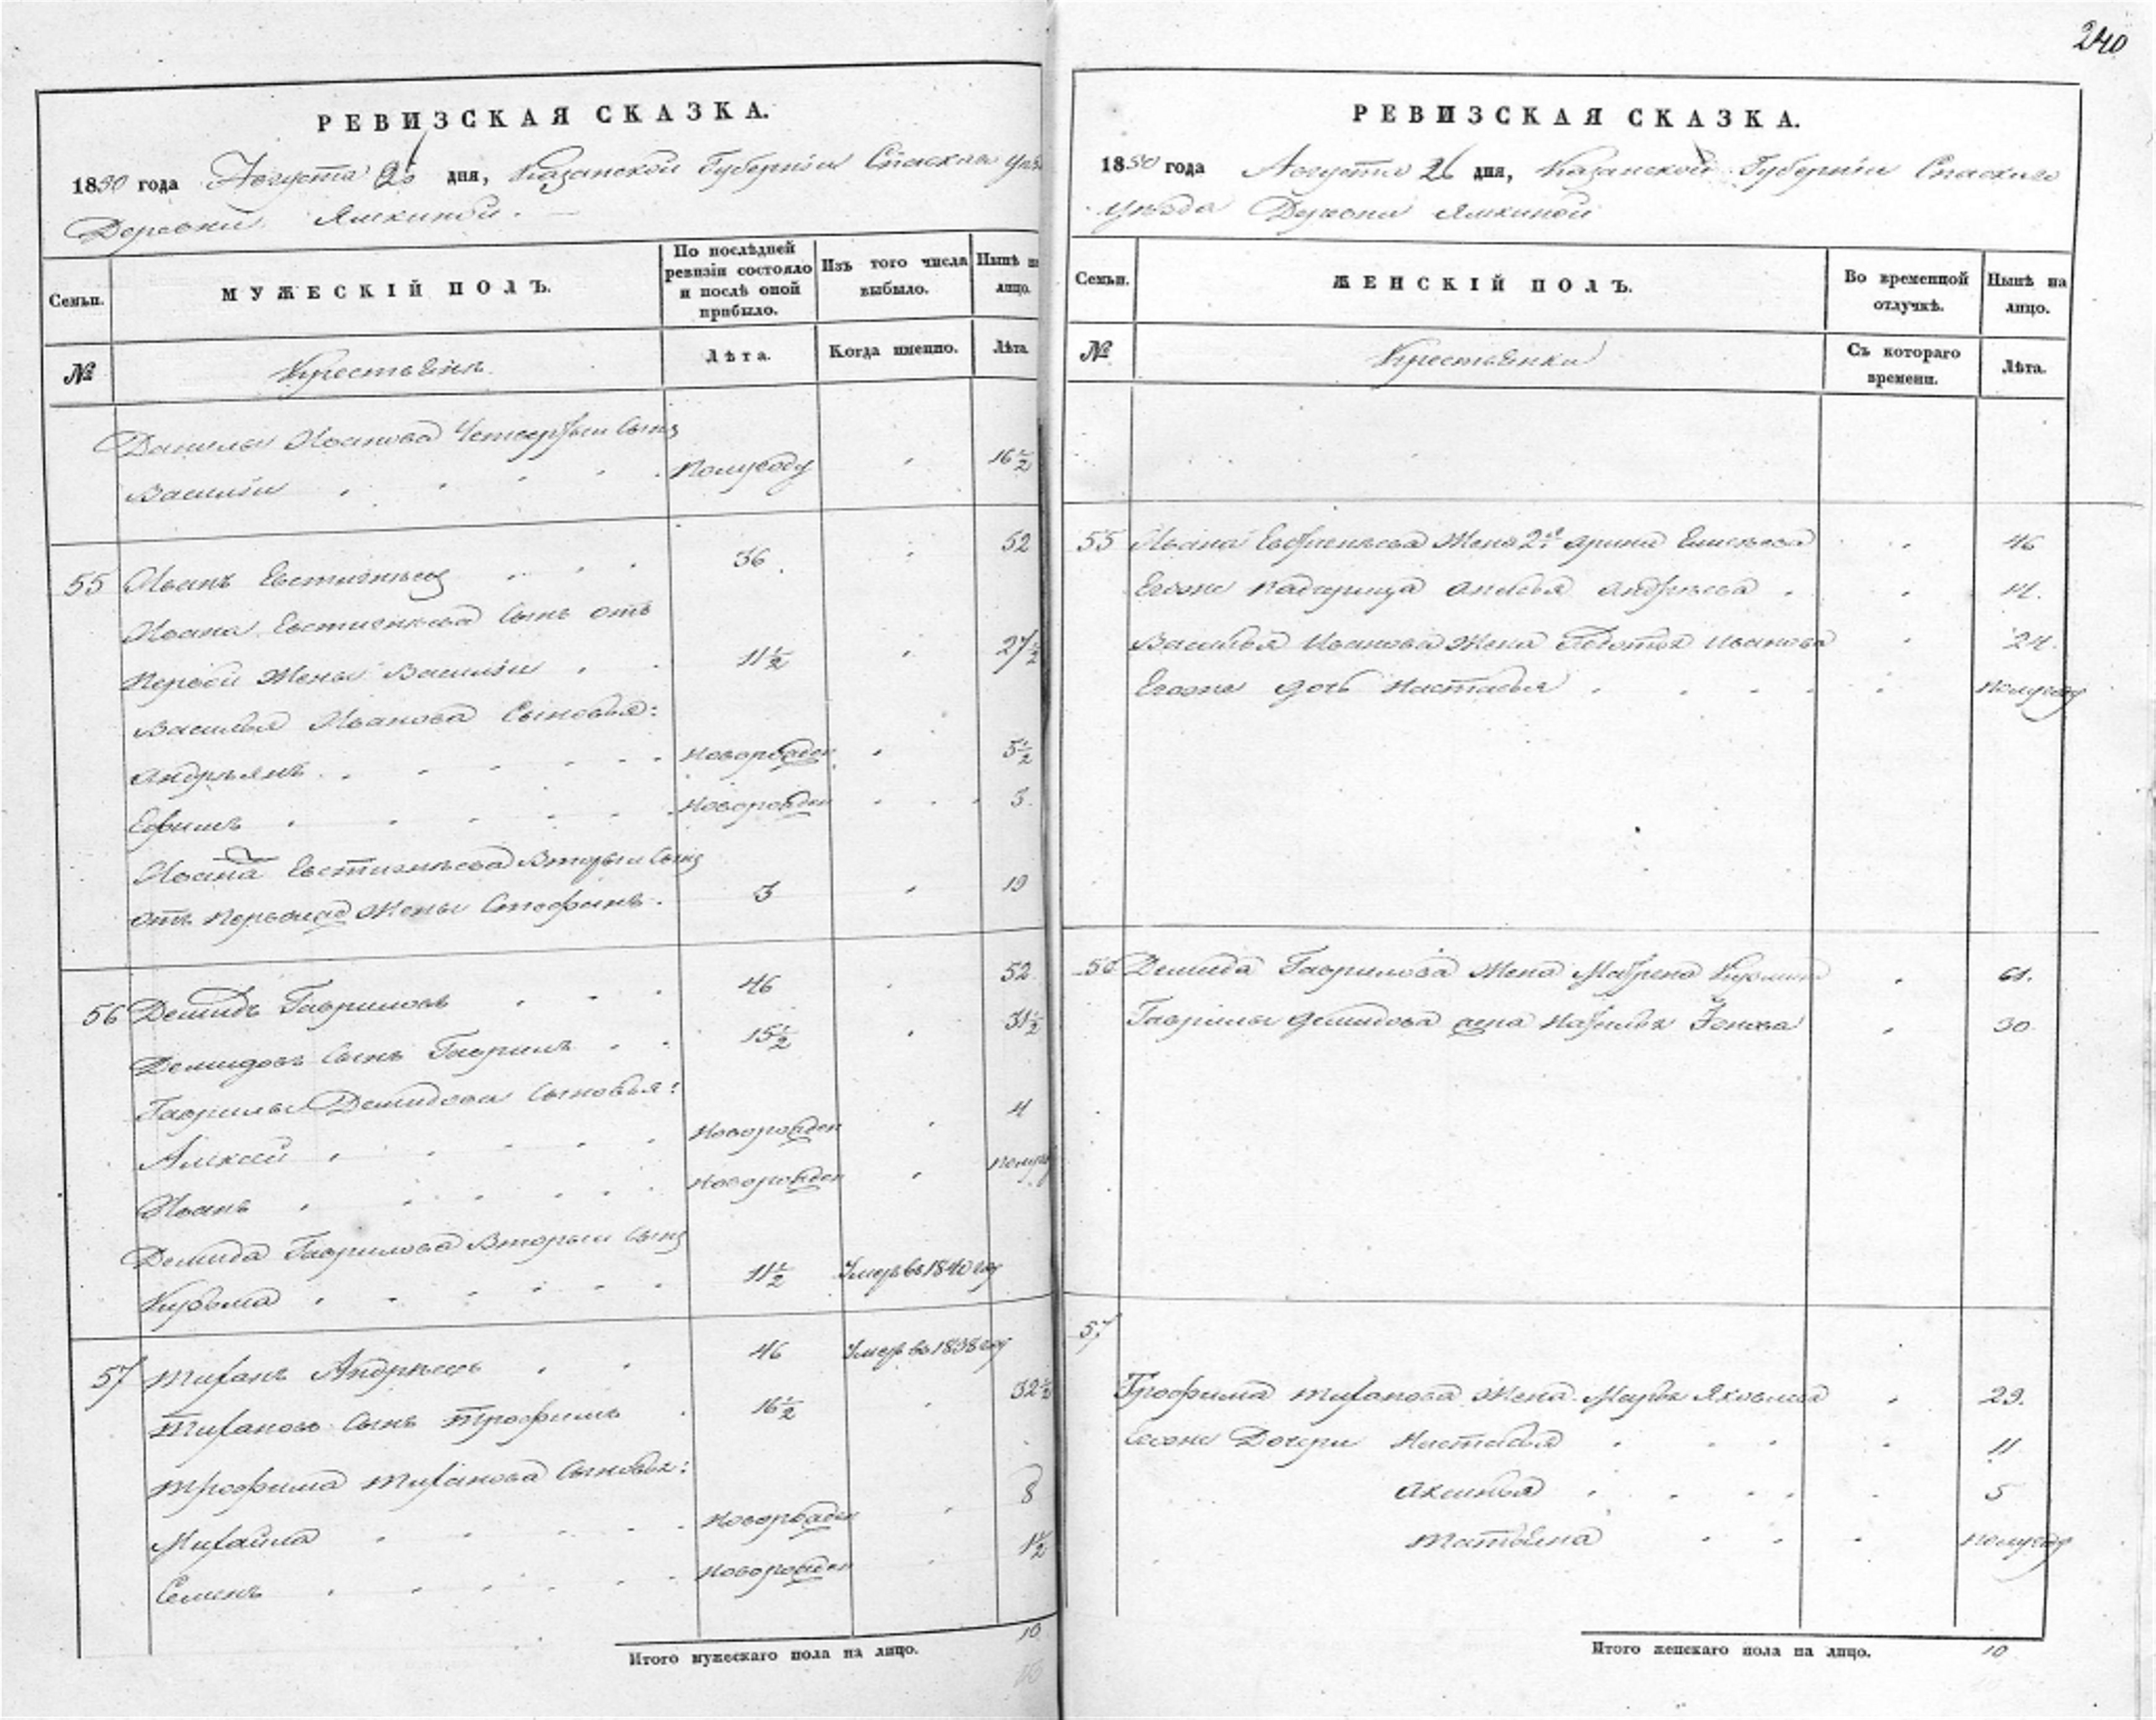 240
РЕВИЗСКАЯ СКАЗКА.
1850 года Августа 26 дня, Казанской Губернии Спаскаго
Деревни Яшкиной.
Семьи.
МУЖЕСКІЙ ПОЛЪ.
По послѣдней ревизіи состояло и послѣ оной прибыло.
Изъ того числа выбыло.
Нынѣ на лицо.
№
Крестьянъ
Лѣта.
Когда именно.
Лѣта
Данилы Иванова Четвертый Сынъ
Василій Полугоду 16½
55 Иванъ Евстигнѣевъ 36 52
Ивана Евстигнѣева Сынъ отъ
Первой Жены Василій 11½ 27½
Василья Иванова Сыновья:
Андреянъ Новорожден 5½
Ефимъ Новорожден 3
Ивана Евстигнѣева Вторый Сынъ
отъ Жены Стефанъ 3 19
56 Демидъ Гавриловъ 46 52
Демидовъ Сынъ Гаврила 15½ 31½
Гаврилы Демидова Сыновья:
Алексей Новорожден 4
Иванъ Новорожден
Демида Гаврилова Вторый Сынъ
Кузьма 11½ Умеръ въ 1840 году
57 Тихонъ Андреевъ 46 Умеръ въ 1838 году
Тихановъ Сынъ Трофимъ 16½ 32½
Трофима Тиханова Сыновья:
Михайла Новорожден 8
Семенъ Новорожден 1½
Итого мужескаго пола на лицо. 10
РЕВИЗСКАЯ СКАЗКА.
1850 года Августа 26 дня, Казанской Губерніи Спаскаго
уѣзда Деревни Яшкиной
Семьи.
ЖЕНСКІЙ ПОЛЪ.
Во временной отлучкѣ.
Нынѣ на лицо.
№
Крестьянки
Съ котораго времени.
Лѣта.
55 Ивана Жена 2я Арина Елисѣева 46
Егоже Падчерица Андрѣева 14.
Василья Иванова Жена Федотья Иванова 24.
Егоже дочь Настасья полугоду
56 Демида Гаврилова Жена Матрена 61.
Гаврилы Демидова жена Наталья 30
57
Трофима Тиханова Жена Марья Яковлева 29.
Егоже Дочери Настасья 11
Аксинья 5
Татьяна полугоду
Итого женскаго пола на лицо. 10